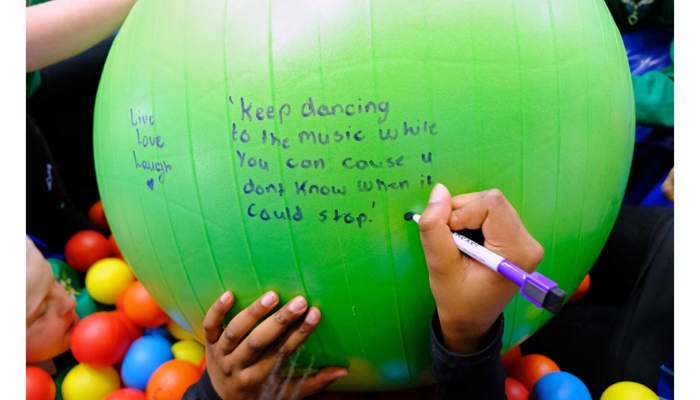 Live
Love
Laugh
'Keep dancing
to the music while
You can cause u
dont know when it
could stop.'